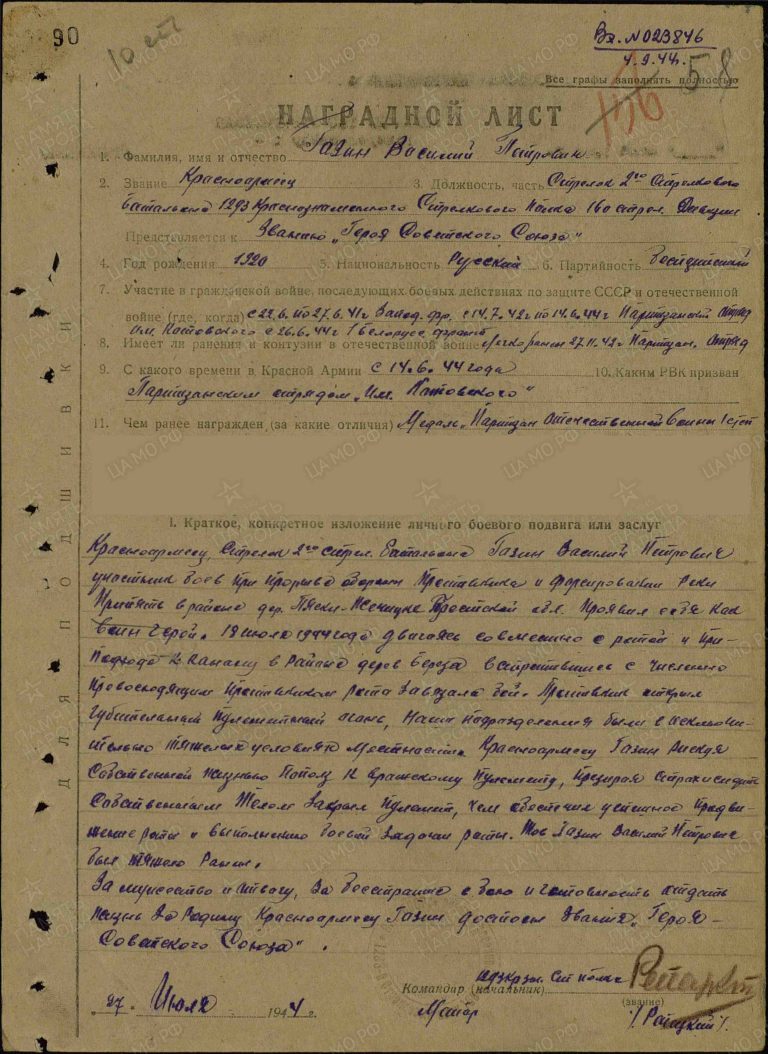 90
10 отд
Вх. № 023846
4.9.44г.
Все графы заполнять полностью
136 58
НАГРАДНОЙ ЛИСТ
1. Фамилия, имя и отчество Газин Василий Петрович
2. Звание Красноармеец 3. Должность, часть Стрелок 2го Стрелкового
батальона 1293 Краснознаменного Стрелкового Полка 160 стрел. Дивизии
Представляется к Званию „Героя Советского Союза"
4. Год рождения 1920 5. Национальность Русский 6. Партийность Беспартийный
7. Участие в гражданской войне, последующих боевых действиях по защите СССР и отечественной
войне (где, когда) с 22.6. по 27.6.41г Запад. фр. с 14.7.42г по 14.6.44г Партизанский отряд
им. Котовского с 26.6.44г 1 Белорус. фронт
8. Имеет ли ранения и контузии в отечественной войне Легко ранен 27.11.42г Партизан. отряд
9. С какого времени в Красной Армии с 14.6.44 года 10. Каким РВК призван
Партизанским отрядом „Им. Котовского"
11. Чем ранее награжден (за какие отличия) Медаль „Партизан Отечественной Войны 1 ст
ДЛЯ ПОДШИВКИ
I. Краткое, конкретное изложение личного боевого подвига или заслуг
Красноармеец, Стрелок 2го стрел. батальона Газин Василий Петрович
участник боев при прорыве обороны Противника и форсировании реки
Припять в районе дер. Пяски-Жечицке Брестской обл. Проявил себя как
воин герой. 18 июля 1944 года двигаясь совместно с ротой и при-
подходе к каналу в районе дерев Береза встретившись с численно
превосходящим Противником рота завязала бой. Противник открыл
губительный пулеметный огонь, наши подразделения были в исключи-
тельно тяжелых условиях местности. Красноармеец Газин рискуя
собственной жизнью пополз к вражескому пулемету, презирая страх и смерть
собственным телом закрыл пулемет, чем обеспечил успешное продви-
жение роты и выполнение боевой задачи роты. Тов Газин Василий Петрович
был тяжело ранен.
За мужество и отвагу, за бесстрашие в бою и готовность отдать
жизнь за Родину Красноармеец Газин достоин звания „Героя-
Советского Союза".
Командир (начальник) 1293 Крзн. Стр полка
(звание)
„27." Июля 1944 г. Майор /Ратацкий/.